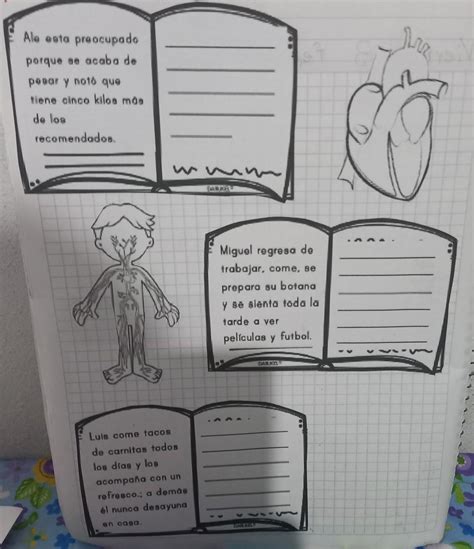 Ale esta preocupado
porque se acaba de
pesar y notó que
tiene cinco kilos más
de los
recomendados.
Miguel regresa de
trabajar, come, se
prepara su botana
y se sienta toda la
tarde a ver
películas y futbol.
Luis come tacos
de carnitas todos
los días y los
acompaña con un
refresco.; a demás
él nunca desayuna
en casa.